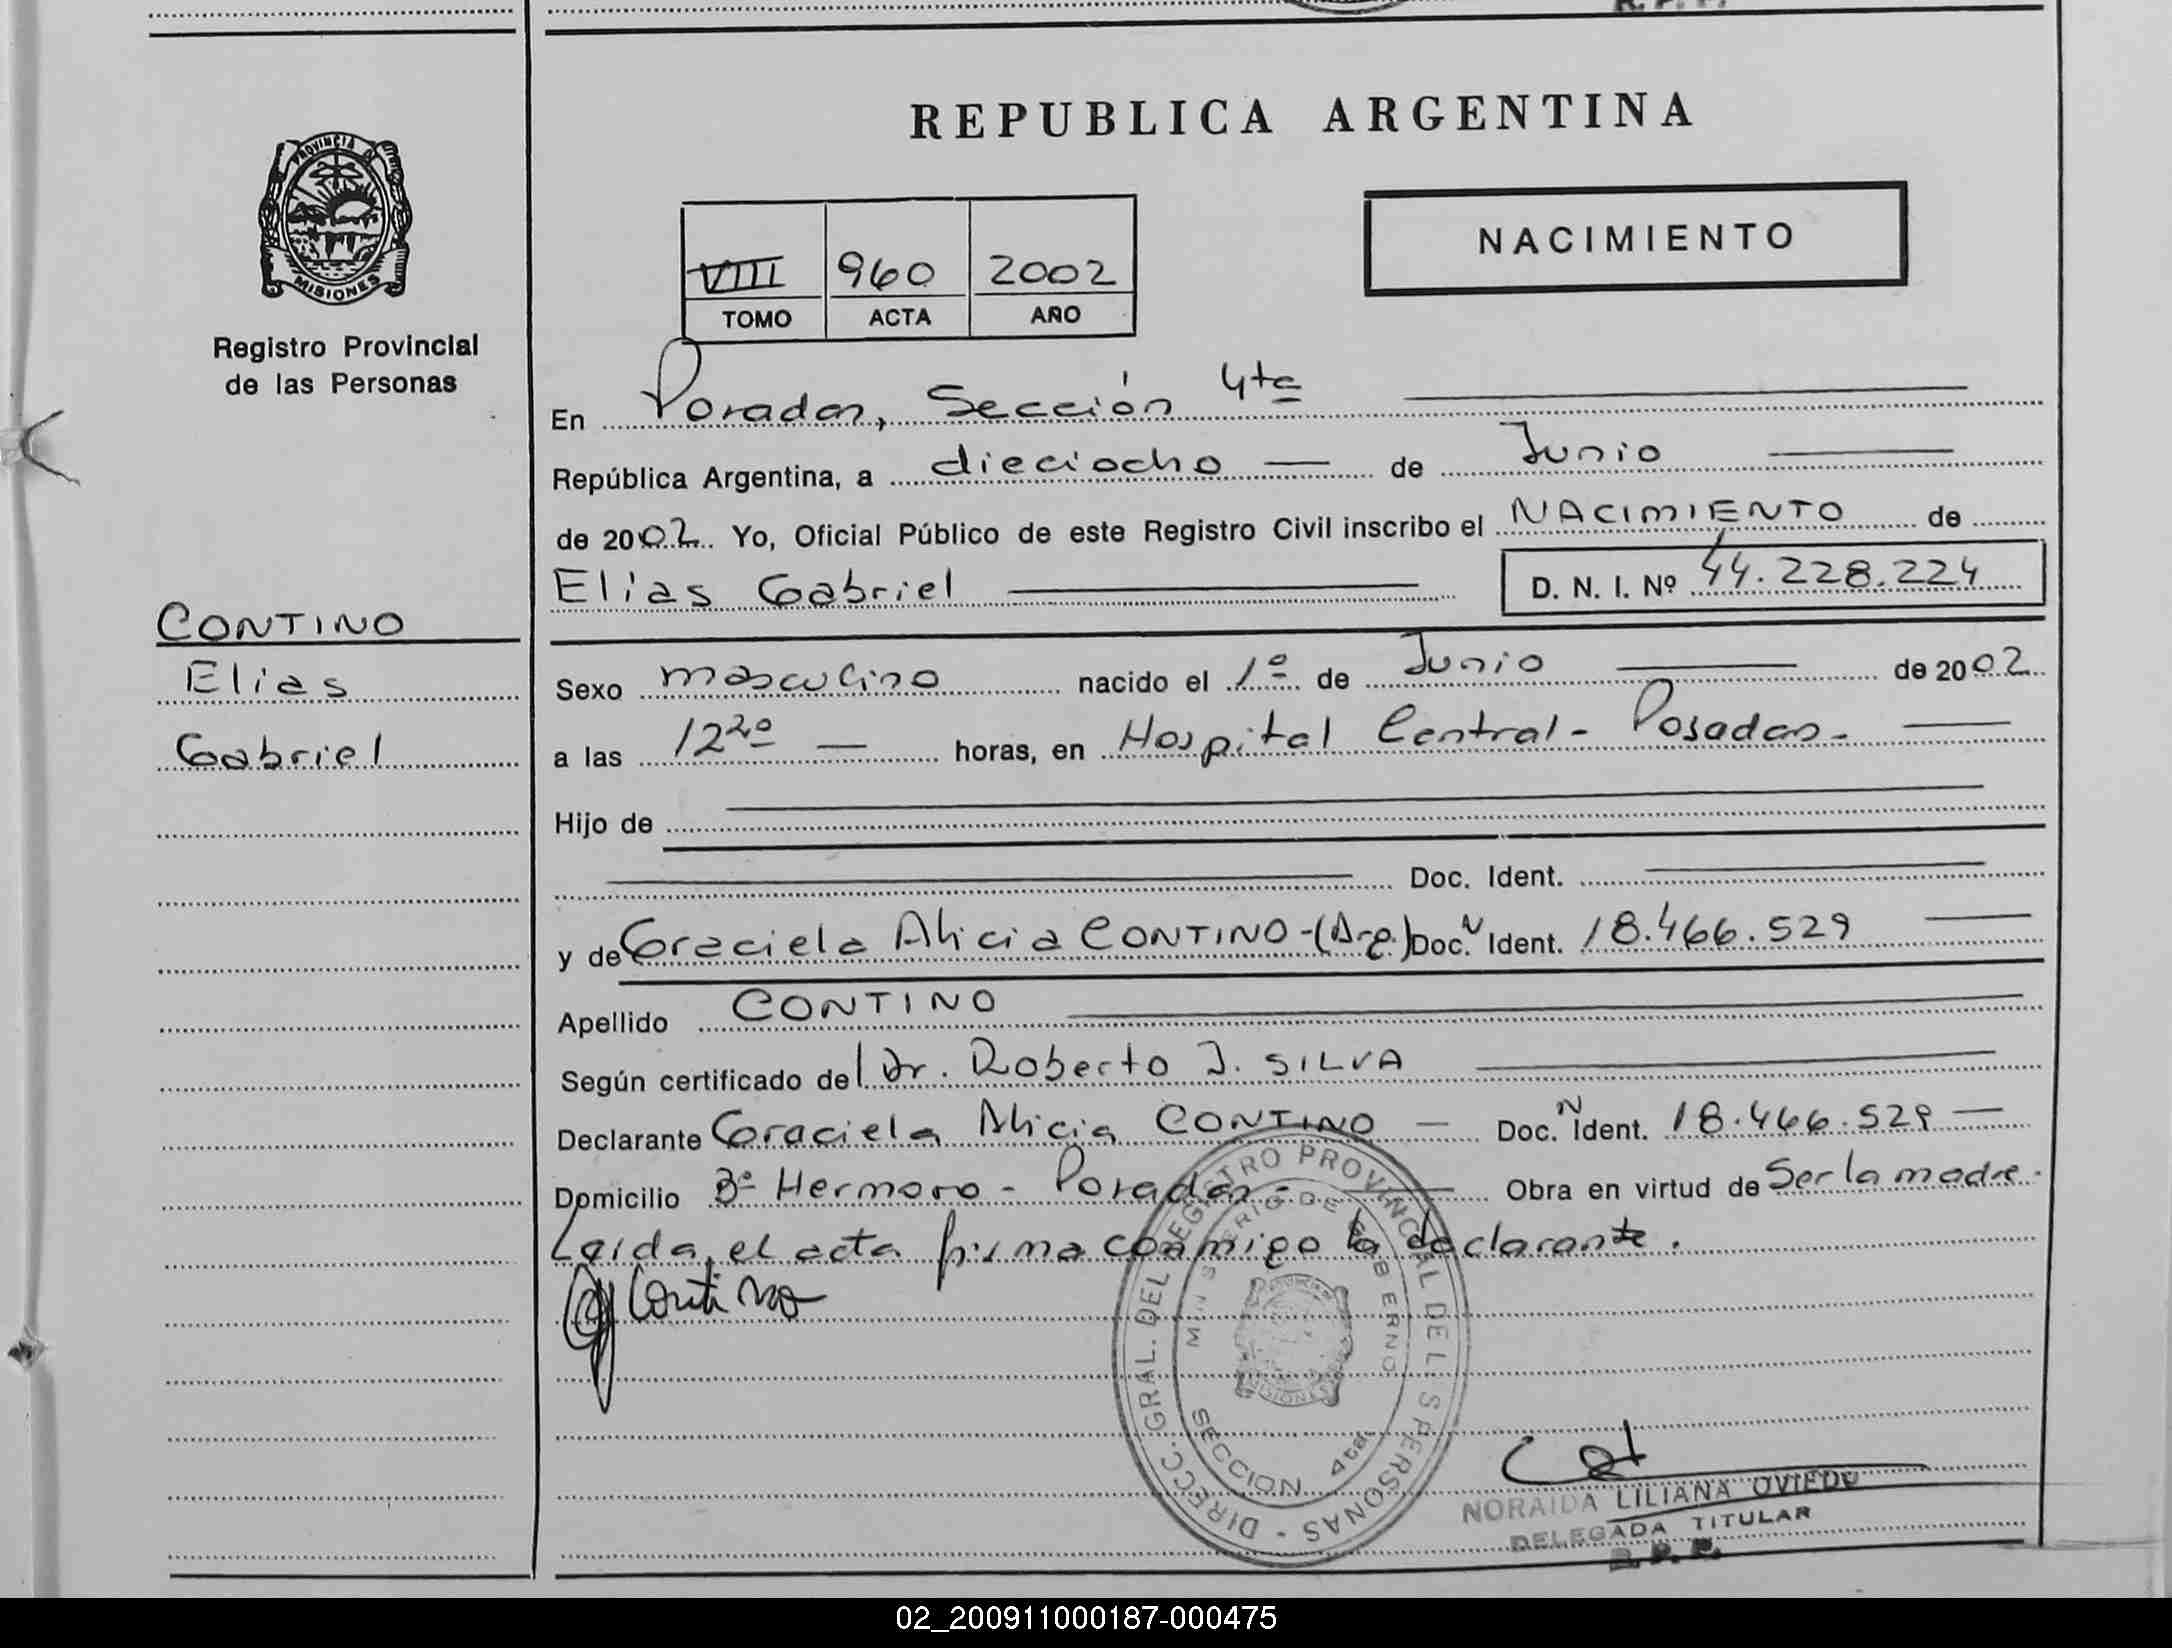 REPUBLICA ARGENTINA
PROVINCIA DE
MISIONES
Registro Provincial
de las Personas
NACIMIENTO
VIII 960 2002
TOMO ACTA AÑO
En Posadas, Sección 4ta
República Argentina, a dieciocho — de Junio
de 2002 Yo, Oficial Público de este Registro Civil inscribo el NACIMIENTO de
Elias Gabriel D. N. I. Nº 44.228.224
CONTINO
Elias
Gabriel
Sexo masculino nacido el 1º de Junio de 2002
a las 12 20 — horas, en Hospital Central - Posadas -
Hijo de
Doc. Ident.
y de Graciela Alicia CONTINO - (Arg.) Doc. N Ident. 18.466.529
Apellido CONTINO
Según certificado del Dr. Roberto J. SILVA
Declarante Graciela Alicia CONTINO — Doc. N Ident. 18.466.529 —
Domicilio Bº Hermoso - Posadas - Obra en virtud de Ser la madre.
Leída el acta firma conmigo la declarante.
Contino
DIRECC. GRAL. DEL REGISTRO PROVINCIAL DE LAS PERSONAS -
MINISTERIO DE GOBIERNO
MISIONES
SECCION 4ta.
NORAIDA LILIANA OVIEDO
DELEGADA TITULAR
R. P. P.
02_200911000187-000475